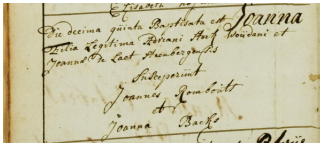 Elisabeth
Die decima quinta Baptisata est Joanna
Filia Legitima Adriani Ant Woüdani et
Joanna De Laet Strenbergensis
Susceperünt
Joannes Romboüts
et
Joanna Backs